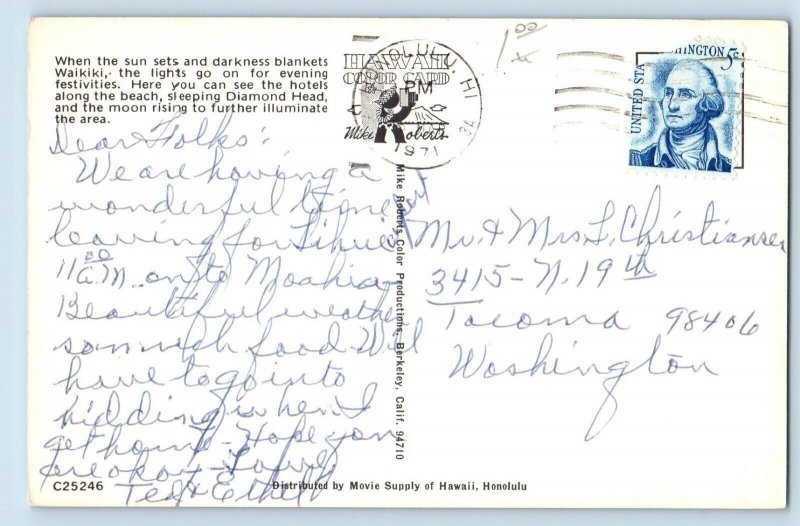 When the sun sets and darkness blankets
Waikiki, the lights go on for evening
festivities. Here you can see the hotels
along the beach, sleeping Diamond Head,
and the moon rising to further illuminate
the area.
HAWAII
COLOR CARD
Mike Roberts
HONOLULU, HI
PM
1971
1.00
WASHINGTON 5c
UNITED STA
Dear Folks:
We are having a
wonderful time
leaving for Lihue at
11 00 A.M. on to
Beautiful weather
so much food. Will
have to go into
hidding when I
get home - Hope you
are okay - Love,
Ted & Ethel
Mr. & Mrs L. Christiansen
3415 - N. 19th
Tacoma 98406
Washington
Mike Roberts Color Productions, Berkeley, Calif. 94710
C25246
Distributed by Movie Supply of Hawaii, Honolulu